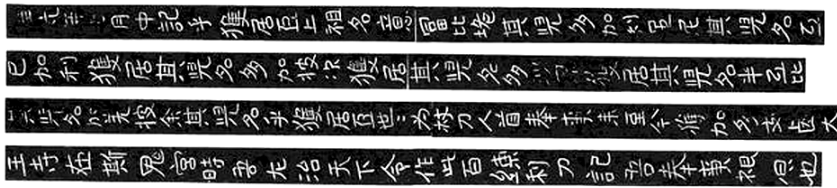 辛亥年七月中記乎獲居臣上祖名意富比垝其児多加利足尼其児名弖
已加利獲居其児名多加披次獲居其児名多沙鬼獲居其児名半弖比
其児名加差披余其児名乎獲居臣世々為杖刀人首奉事来至今獲加多支鹵大
王寺在斯鬼宮時吾左治天下令作此百練利刀記吾奉事根原也